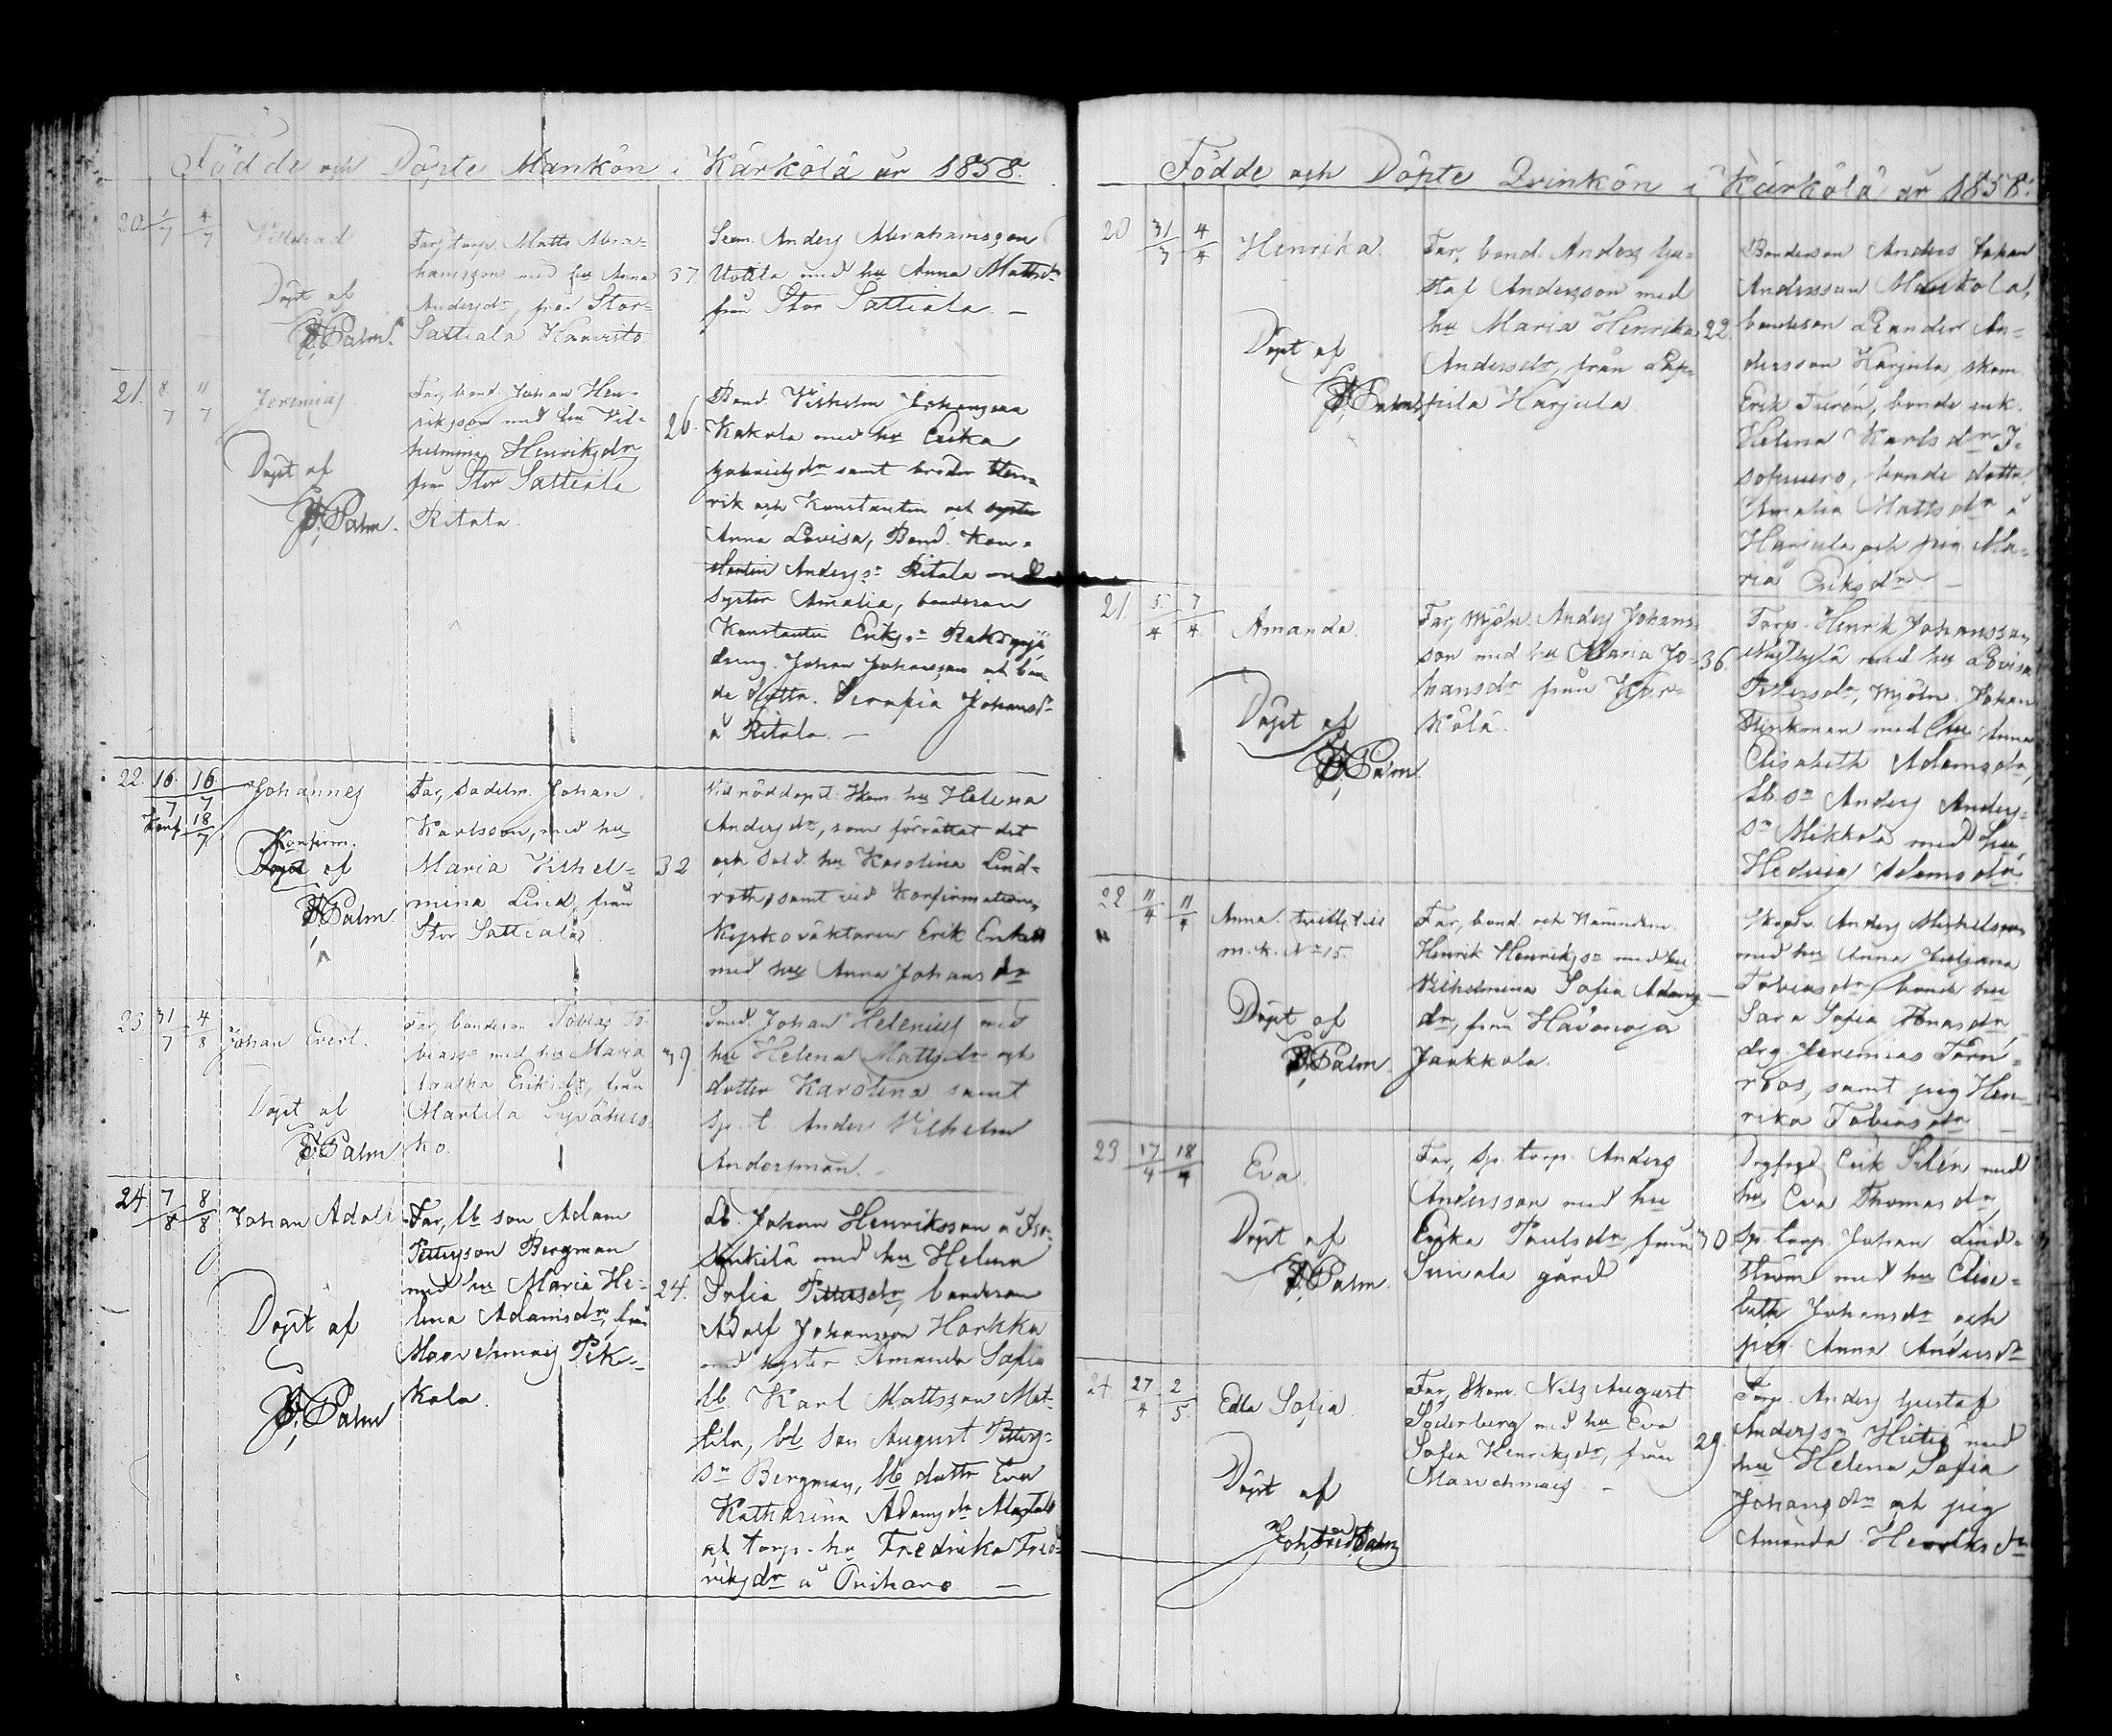 Födde och Döpte Mankön i Kärkölä år 1858.
20 1/7 4/7
Döpt af
Palm.
Far, torp. Matts Abra-
hamsson med hu Anna
Andersdr, från Stor-
Sattiala
37
Anders Abrahamsson
Uotila med hu Anna Mattsdr
från Stor Sattiala —
21. 8/7 11/7
Jeremias
Döpt af
Palm.
Far, bond. Johan Hen-
riksson med hu Vil-
helmina Henriksdr
från Stor Sattiala
Ritala.
26.
Bond. Vilhelm Johansson
Kakola med hu Erika
Gabrielsdr samt broder Hen-
rik och Konstantin och syster
Anna Lovisa, Bond. Kon-
stantin Anderss Ritala med
syster Amalia, bondeson
Konstantin Erikss
dreng. Johan Johansson och bon-
de dottr. Serafia Johansdr
å Ritala. —
22. 16/7 16/7
Konf. 18/7
Johannes
Konfirm.
Döpt af
Palm
Far, Sadelm. Johan
Karlsson, med hu
Maria Vilhel-
mina Lind, från
Stor Sattiala
32
Vid nöddopet Skom. hu Helena
Andersdr, som förrättat det
och Sold. hu Karolina Lind-
roth, samt vid Konfirmationen
Kyrkováktaren Erik
med hu Anna Johansdr
23 31/7 4/8
Johan Evert.
Döpt af
Palm
Far, bondeson Tobias To-
biass med hu Maria
Eriksdr, från
Martila
ko.
39.
Smed. Johan Helenius med
hu Helena Mattsdr och
dotter Karolina samt
Sp. t. Anders Vilhelm
Andersman. —
24. 7/8 8/8
Johan Adolf
Döpt af
Palm
Far, lb son Adam
Pettersson Bergman
med hu Maria He-
lena Adamsdr, från
Maavehmais Pik-
kala.
24.
Lb. Johan Henriksson å
med hu Helena
Sofia Pettersdr, bondeson
Adolf Johansson Horkka
med syster Amanda Sofia
lb. Karl Mattsson Mat-
tila, lb son August Petters-
sn Bergman, lb dottr Eva
Katharina Adamsdr
och torp. hu Fredrika Fred-
riksdr å —
Födde och Döpte Qvinkön i Kärkölä år 1858.
20 31/3 4/4
Henrika.
Döpt af
Palm
Far, bond. Anders Gu-
staf Andersson med
hu Maria Henrika
Andersdr, från Lap-
pila Harjula
22.
Bondeson Anders Johan
Andersson
bondeson Leander An-
dersson Harjula, skom.
Erik Turén, bonde enk.
Helena Karlsdr I-
, bonde dottr.
Amalia Mattsdr å
Harjula och pig. Ma-
ria Eriksdr —
21. 5/4 7/4
Amanda.
Döpt af
Palm
Far, Mjöln. Anders Johans-
son med hu Maria Jo-
hansdr från Kär-
kölä.
36.
Torp. Henrik Johansson
med hu Lovisa
Petersdr, Mjöln. Johan
med hu Anna
Elisabeth Adamsdr,
Lb sn Anders Anders-
sn Mikkola med hu
Hedvig Adamsdr.
22 11/4 11/4
Anna. tvilling till
m.k. No 15.
Döpt af
Palm.
Far, bond. och Nämndem.
Henrik Henrikss med hu
Vilhelmina Sofia Adams-
dr, från Hävonoja
Jaakkola.
—
Anders Michelsson
med hu Anna Juliana
Tobiasdr, bonde hu
Sara Sofia Jonasdr
drg. Jeremias Törn-
roos, samt pig Hen-
rika Tobiasdr —
23 17/4 18/4
Eva.
Döpt af
Palm.
Far, Sp. torp. Anders
Andersson med hu
Erika Paulsdr, från
gård
30
Erik Silén med
hu Eva Thomasdr
Sp. torp. Johan Lind-
ström med hu Elisa-
beth Johansdr och
pig. Anna Andersdr
24. 27/4 2/5
Edla Sofia.
Döpt af
Joh. Fred. Palm
Far, Skom. Nils August
Söderberg med hu Eva
Sofia Henriksdr, från
Maavehmais. —
29.
Torp. Anders Gustaf
Anderssn med
hu Helena Sofia
Johansdr och pig
Amanda Henriksdr